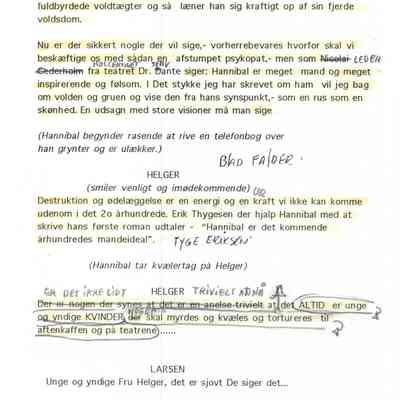 fuldbyrdede voldtægter og så læner han sig kraftigt op af sin fjerde
voldsdom.
Nu er der sikkert nogle der vil sige,- vorherrebevares hvorfor skal vi
beskæftige os med sådan en afstumpet psykopat,- men som Nicolai LEDER
Cederholm fra teatret Dr. Dante siger: Hannibal er meget mand og meget
inspirerende og følsom. I Det stykke jeg har skrevet om ham vil jeg bag
om volden og gruen og vise den fra hans synspunkt,- som en rus som en
skønhed. En udsagn med store visioner må man sige
(Hannibal begynder rasende at rive en telefonbog over
han grynter og er ulækker.)
BLAD FALDER.
HELGER
(smiler venligt og imødekommende)
Destruktion og ødelæggelse er en energi og en kraft vi ikke kan komme
udenom i det 2o århundrede. Erik Thygesen der hjalp Hannibal med at
skrive hans første roman udtaler - "Hannibal er det kommende
århundredes mandeideal". TYGE ERIKSEN
(Hannibal tar kvælertag på Helger)
ER DET IKKE LIDT HELGER TRIVIELT
Der er nogen der synes at det er en anelse trivielt at det ALTID er unge
og yndige KVINDER, der skal myrdes og kvæles og tortureres til
aftenkaffen og på teatrene......
LARSEN
Unge og yndige Fru Helger, det er sjovt De siger det...